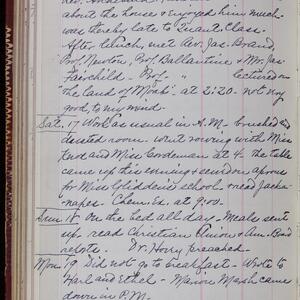 about the house & enjoyed him much
was thereby late to Quant. Class.
After which, met Rev. Jas. Brand,
Prof. Newton, Prof Ballantine & Mr. Jas
Fairchild. Prof. " lectured on
"the land of Moab" at 2:20 - not very
good, to my mind.
Sat. 17 Work as usual in A.M. brushed and
dusted room. went rowing with Miss
and Miss Cordeman at 4. The table
came up this evening & sewed on aprons
for Miss Glidden's school & read Jacka-
napes. Chem. Ed. at 9:00.
Sun. 18 On the bed all day - Meals sent
up. read Christian Union & Am. Board
report. Dr. Hovey preached.
Mon 19 Did not go to breakfast - Wrote to
Harl and Ethel - Marion Marsh came
down in P.M.